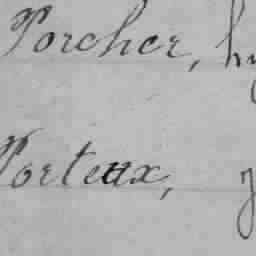 Porcher,
Porteux,